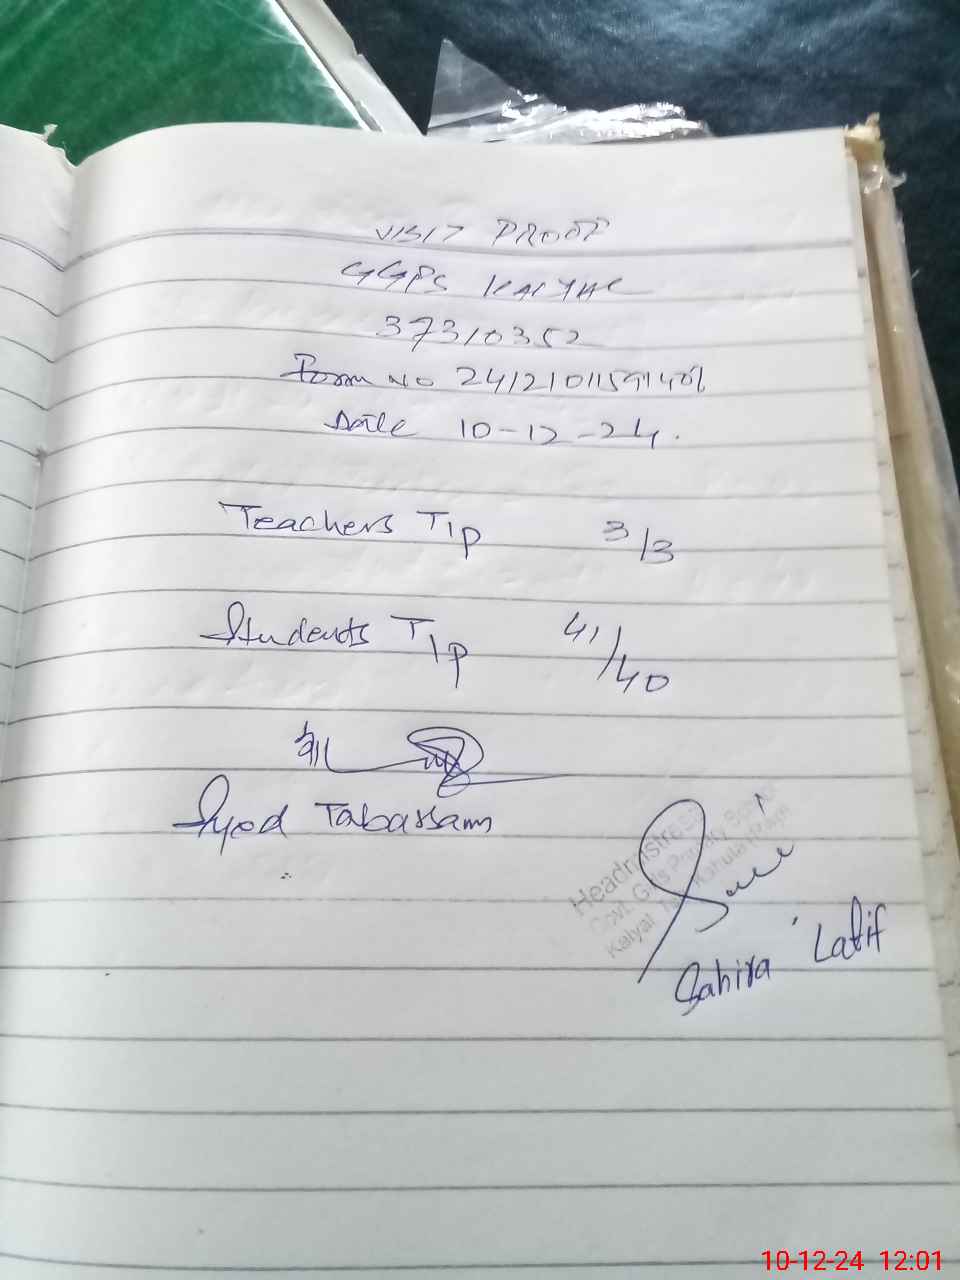 VISIT PROOF
GGPS KALYAL
37310352
Form No
Date 10-12-24.
Teachers T/p 3/3
Students T/p 41/40
Syed Tabassam
Headmistress
Govt. Girls Primary School
Kalyal Kahuta
Sahira Latif
10-12-24 12:01